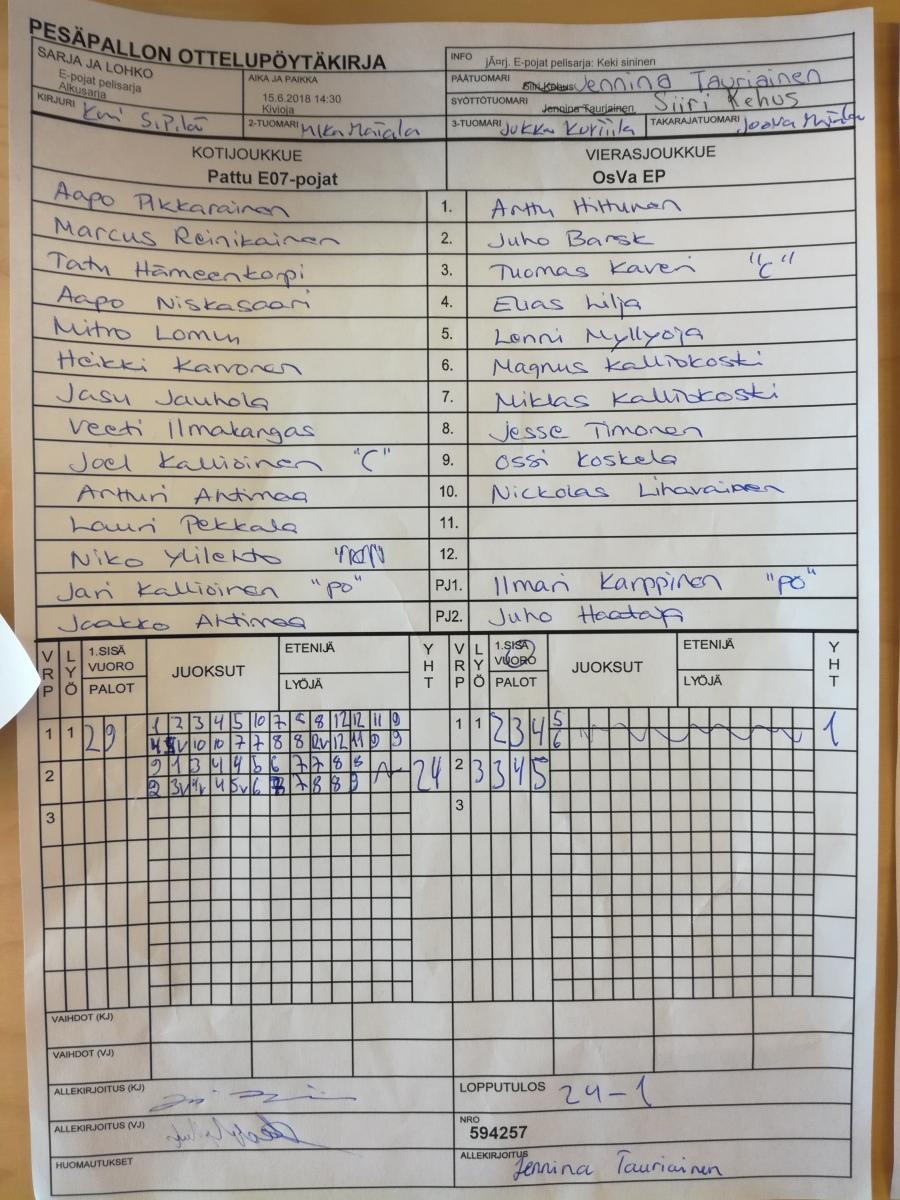 PESÄPALLON OTTELUPÖYTÄKIRJA
SARJA JA LOHKO
E-pojat pelisarja
Alkusarja
AIKA JA PAIKKA
15.6.2018 14:30
Kivioja
INFO jÃ¤rj. E-pojat pelisarja: Keki sininen
PÄÄTUOMARI Siiri Kehus Jennina Tauriainen
SYÖTTÖTUOMARI Jennina Tauriainen Siiri Kehus
KIRJURI Kari Sipilä
2-TUOMARI Mika Matala
3-TUOMARI Jukka Kurtiila
TAKARAJATUOMARI Joona
KOTIJOUKKUE VIERASJOUKKUE
Pattu E07-pojat OsVa EP
Aapo Pikkarainen 1. Arttu Hiltunen
Marcus Reinikainen 2. Juho Barsk
Tatu Hämeenkorpi 3. Tuomas Kaveri "C"
Aapo Niskasaari 4. Elias Lilja
Mitro Lomu 5. Lenni Myllyoja
Heikki Karvonen 6. Magnus Kalliokoski
Jasu Jauhola 7. Niklas Kalliokoski
Veeti Ilmakangas 8. Jesse Timonen
Joel Kallioinen "C" 9. Ossi Koskela
Artturi Ahtimaa 10. Nickolas Lihavainen
Lauri Pekkala 11.
Niko Ylilehto 12.
Jari Kallioinen "PO" PJ1. Ilmari Karppinen "PO"
Jaakko Ahtimaa PJ2. Juho Haataja
VRP LYÖ 1.SISÄ VUORO PALOT JUOKSUT ETENIJÄ LYÖJÄ YHT VRP LYÖ 1.SISÄ VUORO PALOT JUOKSUT ETENIJÄ LYÖJÄ YHT
1 1 2 9 1 2 3 4 5 10 7 8 8 12 12 11 9 1 1 2 3 4 5 1
10 10 7 7 8 8 12 11 9 9 6
2 9 1 3 4 4 5 6 7 7 8 8 24 2 3 3 4 5
2 3v 4v 4 5v 6 7 8 8 9
3 3
VAIHDOT (KJ)
VAIHDOT (VJ)
ALLEKIRJOITUS (KJ) LOPPUTULOS 24-1
ALLEKIRJOITUS (VJ) NRO
594257
HUOMAUTUKSET ALLEKIRJOITUS Jennina Tauriainen